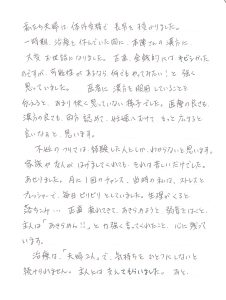 私たち夫婦は体外受精で長男を授かりました。
一時期、治療を休んでいた間に本陣さんの漢方に
大変お世話になりました。正直、金銭的にはきびしかった
のですが、可能性があるなら何でもやってみたい！と強く
思っていました。 医者に漢方を服用していることを
伝えると、あまり快く思っていない様子でした。医療の良さも、
漢方の良さも、両方認めて、妊娠にむけてもっと
良いなぁと、思います。
不妊のつらさは、経験した人にしかわからないと思います。
家族や友人がはげましてくれても、それは苦しいだけでした。
あせりました。月に1回のチャンス、当時の私は、ストレスと
プレッシャーで、毎日ピリピリとしていました。生理がくると
落ちこみ… 正直疲れてきて、あきらめようと弱音をはくと、
主人は「あきらめん!!」と力強く言ってくれたこと、心に残って
います。
治療は、「夫婦2人」で、気持ちをひとつにしないと
続けられません。主人とはなんでもいました。あと、